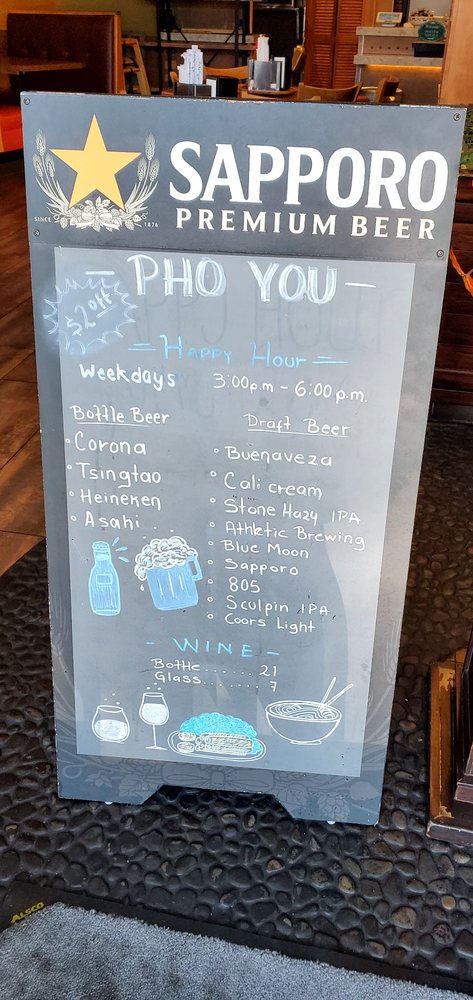 SAPPORO
SINCE 1876
PREMIUM BEER
- PHO YOU -
$2 off
= Happy Hour =
Weekdays 3:00p.m - 6:00 p.m.
Bottle Beer
• Corona
• Tsingtao
• Heineken
• Asahi
Draft Beer
• Buenaveza
• Cali cream
• Stone Hazy IPA
• Athletic Brewing
• Blue Moon
• Sapporo
• 805
• Sculpin IPA
• Coors Light
- WINE -
Bottle...... 21
Glass....... 7
ALSCO